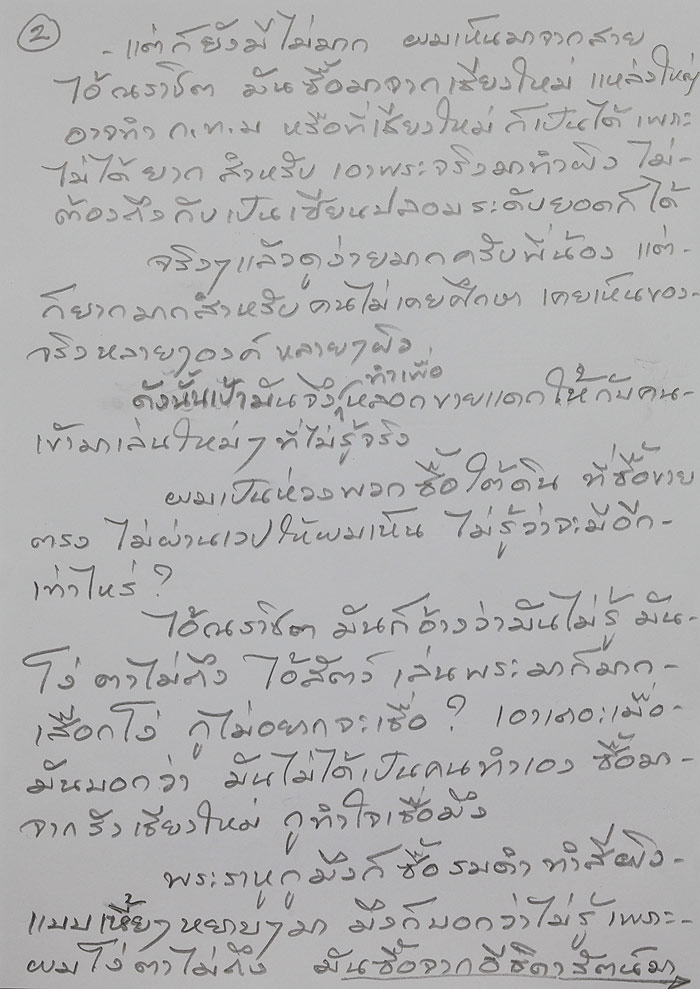 ②
- แต่ก็ยังมีไม่มาก ผมเห็นมาจากสาย
ไอ้ณราชิต มันซื้อมาจากเชียงใหม่ แหล่งใหญ่
อาจทำ ก.ท.ม หรือที่เชียงใหม่ ก็เป็นได้ เพราะ
ไม่ได้ยาก สำหรับ เอาพระจริงมาทำผิว ไม่-
ต้องถึงกับเป็นเซียนปลอมระดับยอดก็ได้
จริงๆแล้วดูง่ายมากครับพี่น้อง แต่-
ก็ยากมากสำหรับคนไม่เคยศึกษา เคยเห็นของ-
จริงหลายๆองค์ หลายๆผิว
ดังนั้นเป้ามันจึงทำเพื่อหลอกขายแดกให้กับคน-
เข้ามาเล่นใหม่ๆ ที่ไม่รู้จริง
ผมเป็นห่วงพวกซื้อใต้ดิน ที่ซื้อขาย
ตรง ไม่ผ่านเวปให้ผมเห็น ไม่รู้ว่าจะมีอีก-
เท่าไหร่ ?
ไอ้ณราชิต มันก็อ้างว่ามันไม่รู้ มัน-
โง่ ตาไม่ถึง ไอ้สัตว์ เล่นพระมาก็มาก-
เสือกโง่ กูไม่อยากจะเชื่อ ? เอาเถอะเมื่อ-
มันบอกว่า มันไม่ได้เป็นคนทำเอง ซื้อมา-
จากรังเชียงใหม่ กูทำใจเชื่อมึง
พระราหูกูมึงก็ซื้อรมดำ ทำสีผิว-
แบบเหี้ยๆ หยาบๆมา มึงก็บอกว่าไม่รู้ เพราะ-
ผมโง่ ตาไม่ถึง มันซื้อจากอีธิดารัตน์มา